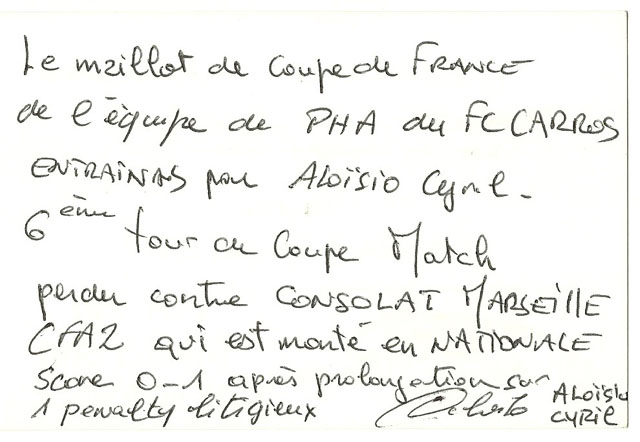 Le maillot de Coupe de FRANCE
de l'équipe de PHA du FC CARROS
ENTRAINAS par ALOÏSIO Cyril.
6ème tour de Coupe Match
perdu contre CONSOLAT MARSEILLE
CFA2 qui est monté en NATIONALE
Score 0-1 après prolongation sur
1 penalty litigieux
ALOÏSIO
CYRIL